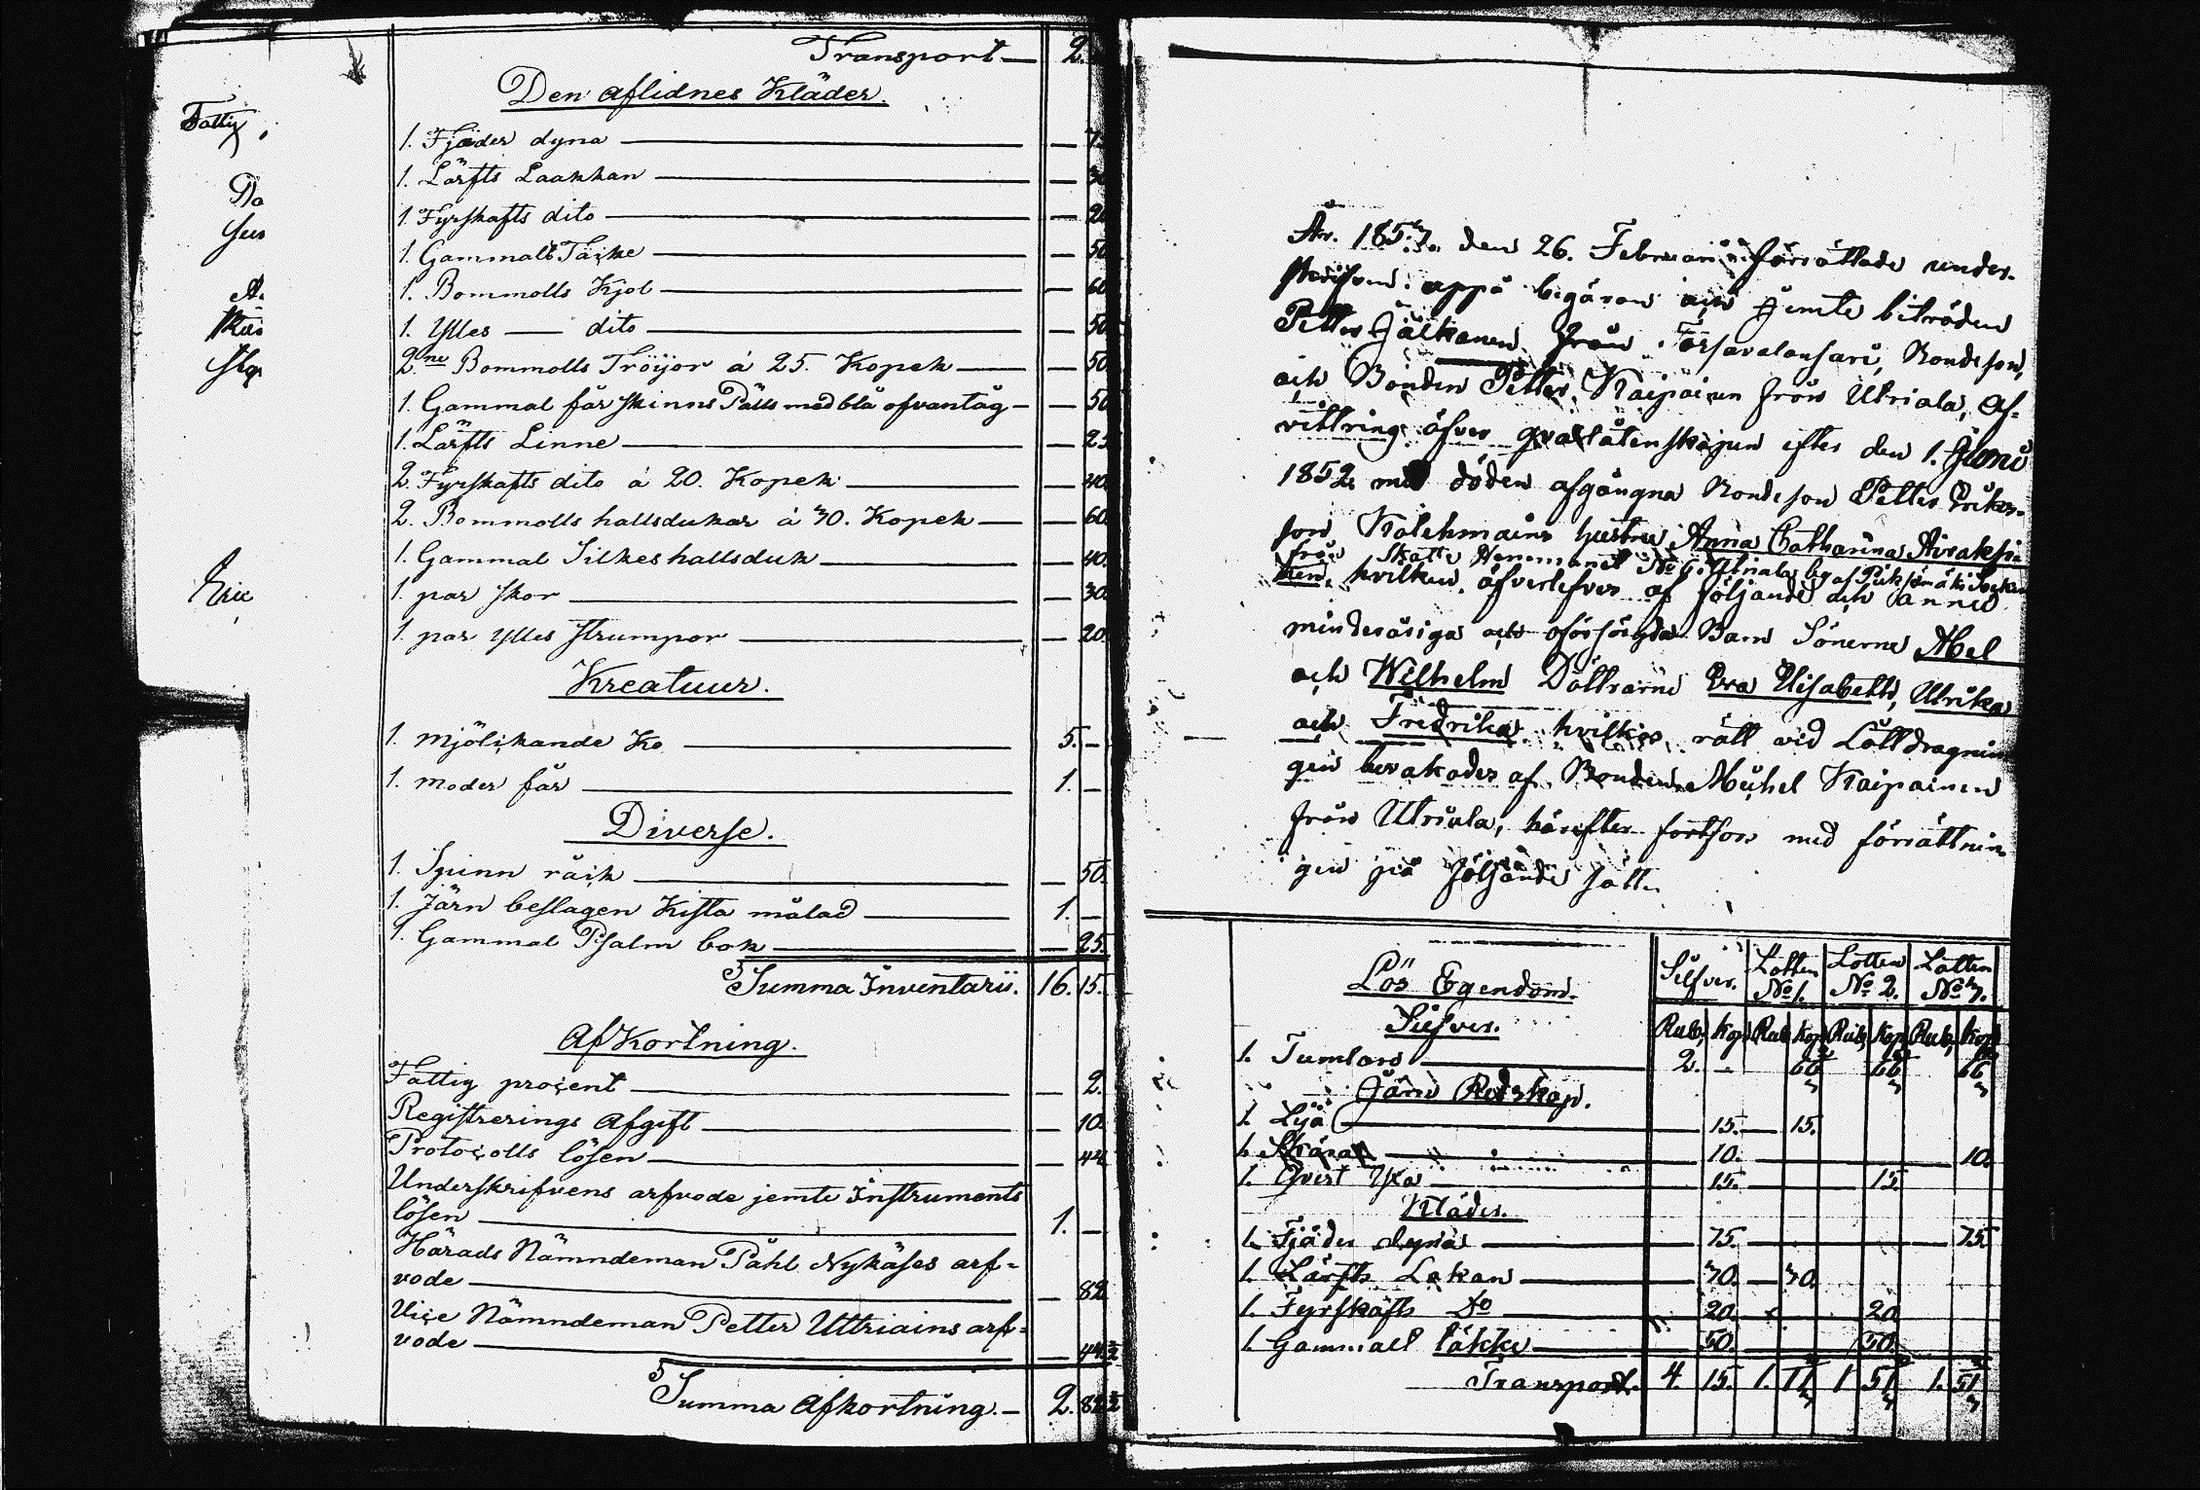 Transport — 2.
Den aflidnes Kläder.
Fattig
1. Fjäder dyna — 7
1. Lärfts Laakkan — 30
1. Fyrskafts dito — 20
1. Gammalt Täcke — 50
1. Bommolls Kjol — 60
1. Ylles — dito — 50
2ne Bommolls Tröijor á 25. Kopek — 50
1. Gammal får skinns Pälls med blå ofvantåg — 50
1. Lärfts Linne — 25
2. Fyrskafts dito á 20. Kopek — 40
2. Bommolls hallsdukar á 30. Kopek — 60.
1. Gammal Silkes hallsduk — 40.
1. par skor — 30.
Eric
1. par ylles strumpor — 20.
Kreatuur.
1. mjölckande Ko — 5. —
1. moder får — 1. —
Diverse.
1. Spinn råck — 50.
1. Järn beslagen Kista målad — 1. —
1. Gammal Psalm bok — 25.
Summa Inventarii. 16. 15.
Afkortning.
Fattig procent — 2.
Registrerings Afgift — 10.
Protocolls lösen — 44
Underskrifvens arfvode jemte Instruments
lösen — 1. —
Härads Nämndeman Påhl Nykäses arf-
vode — 82
Vice Nämndeman Petter Uttriains arf-
vode — 44
Summa Afkortning. — 2. 82
År. 1853. den 26. Februarii förrättade under-
uppå begäran och jemte biträden
Petter Jälkanen från Torsavalansari, Bondeson,
och Bonden Petter Kaipainen från Utriala, af-
vittring öfver qvarlåtenskapen efter den 1. Junii
1852 med döden afgångna Bondeson Petter Erikss-
son Kolehmains hustru Anna Catharina Airaksi-
från Skatte Hemmanet No 6 Utriala by af Pieksämäki Socken
nen, hvilken öfverlefves af följande och annu
minderåriga och oförsörgda Barn Sönerne Abel
och Wilhelm Döttrarne Eva Elisabeth, Ulrika
och Fredrika hvilkas rätt vid Lottdragnin
gen bevakades af Bonden Michel Kaipainen
från Utriala, härefter fortfors med förrättnin
gen på följande sätt.
Lös Egendom. Silfver. Lotten No 1. Lotten No 2. Lotten No 3.
Silfver. Rub, kop Rub kop Rub, kop Rub, kop
1. Tumlare — 2. - 66 66 66
Järn Redskap.
1. Lijä — 15. — 15.
1. Skära — 10. — 10.
1. Qvist Yxa — 15. — 15
Kläder.
1. Fjäder dyna — 75. — 75
1. Lärfts Lakan — 30. — 30.
1. Fyrskafts Do — 20. 20
1. Gammalt täkke — 50. — 50.
Transport. 4. 15. 1. 11 1 51 1. 51